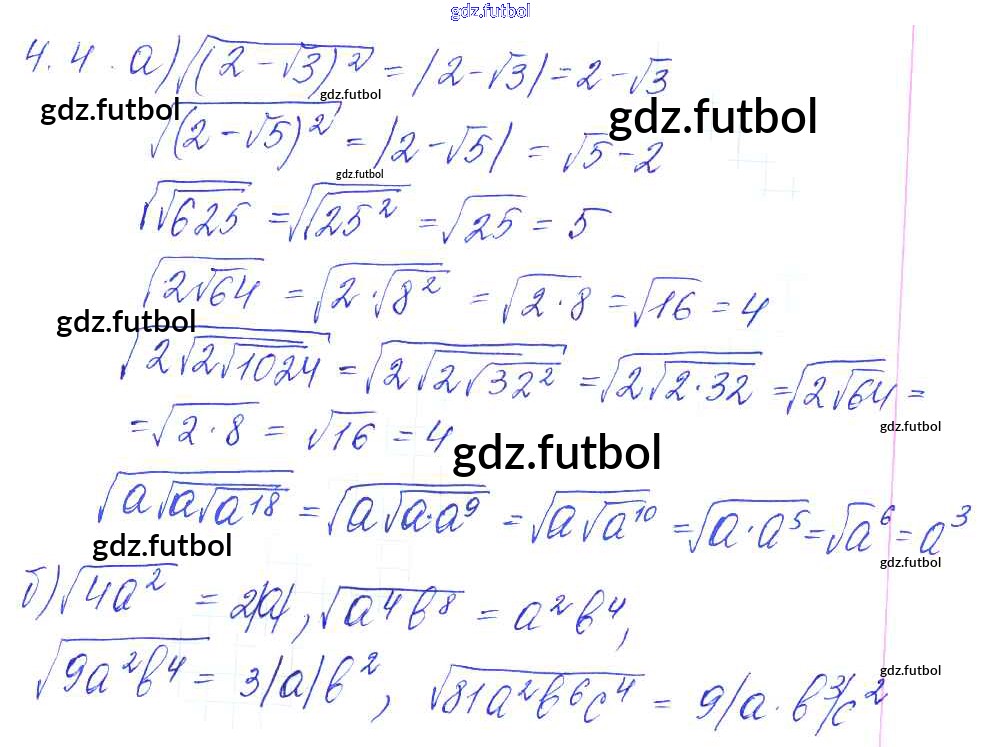 gdz.futbol
4.4. а) √(2-√3)² = |2-√3| = 2-√3
gdz.futbol gdz.futbol gdz.futbol
√(2-√5)² = |2-√5| = √5-2
gdz.futbol
√√625 = √√25² = √25 = 5
√2√64 = √2·√8² = √2·8 = √16 = 4
gdz.futbol
√2√2√1024 = √2√2√32² = √2√2·32 = √2√64 =
gdz.futbol
= √2·8 = √16 = 4
gdz.futbol
√a√a√a¹⁸ = √a√a·a⁹ = √a√a¹⁰ = √a·a⁵ = √a⁶ = a³
gdz.futbol gdz.futbol
б) √4a² = 2|a|, √a⁴b⁸ = a²b⁴,
√9a²b⁴ = 3|a|b², √81a²b⁶c⁴ = 9|a·b³|c²
gdz.futbol